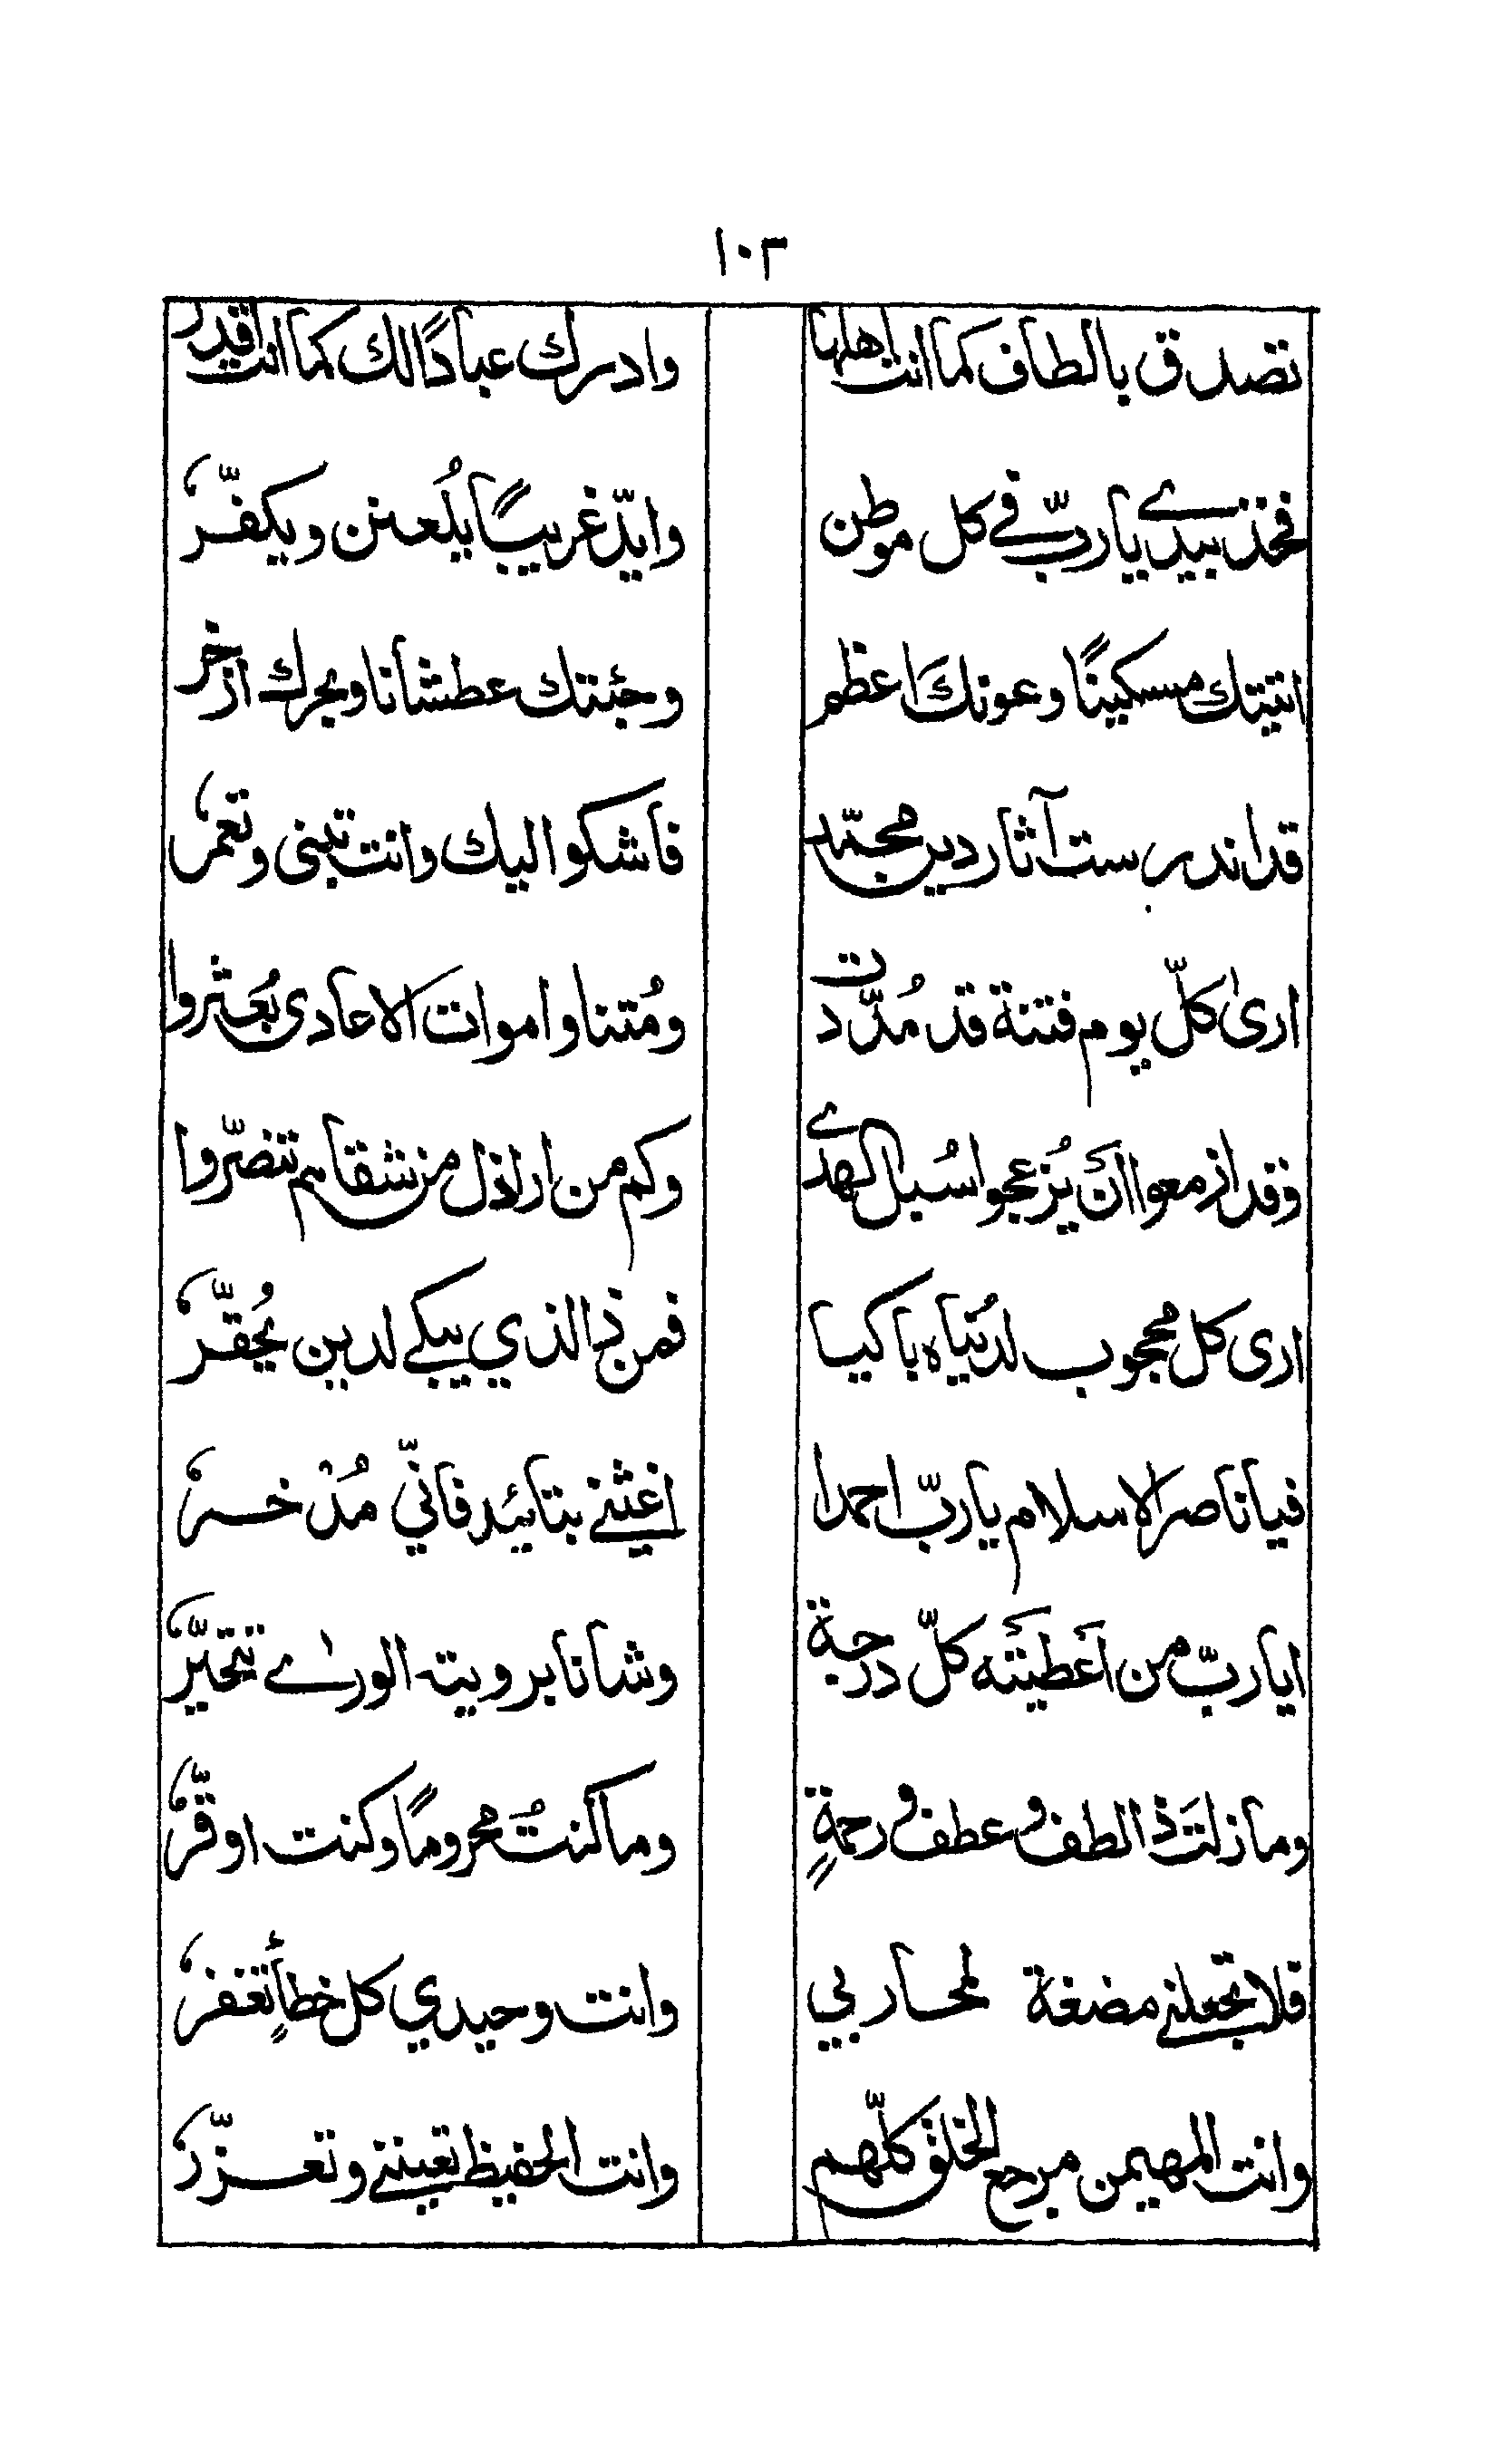 ١٠٢
تصدق بالطاف كما انت اهلها وادرك عبادًا لك كما انت اقدر
فخذ بيدي يا ربّ في كل موطن وايّد غريبًا يُلعنن ويكفّر
اتيتك مسكينًا وعونك اعظم وجئتك عطشانا وبحرك ازخر
قد اندرست آثار دين محمّد فاشكوا اليك وانت تبنى وتعمر
ارىٰ كلّ يوم فتنة قد مُدّدت ومُتنا واموات الاعادى بُعثروا
وقد ازمعوا ان يُزعجوا سُبل الهدى وكم من اراذل من شقاهم تنصّروا
ارى كل محجوب لدُنياه باكيا فمن ذا الذي يبكي لدين يُحقّر
فيا ناصر الاسلام يا ربّ احمدا اغثني بتائيد فانّي مُدْخر
ايا ربّ من اَعطَيتَه كلّ درجة وشانا برويته الورىٰ تتحيّر
وما زلتَ ذا لطف وعطف ورحمةٍ وما كنتُ محرومًا وكنت اوقّر
فلا تجعلني مضغة لمحاربي وانت وحيدي كل خطأٍ تغفر
وانت المهيمن مرجع الخلق كلّهم وانت الحفيظ تعينني وتعزّر